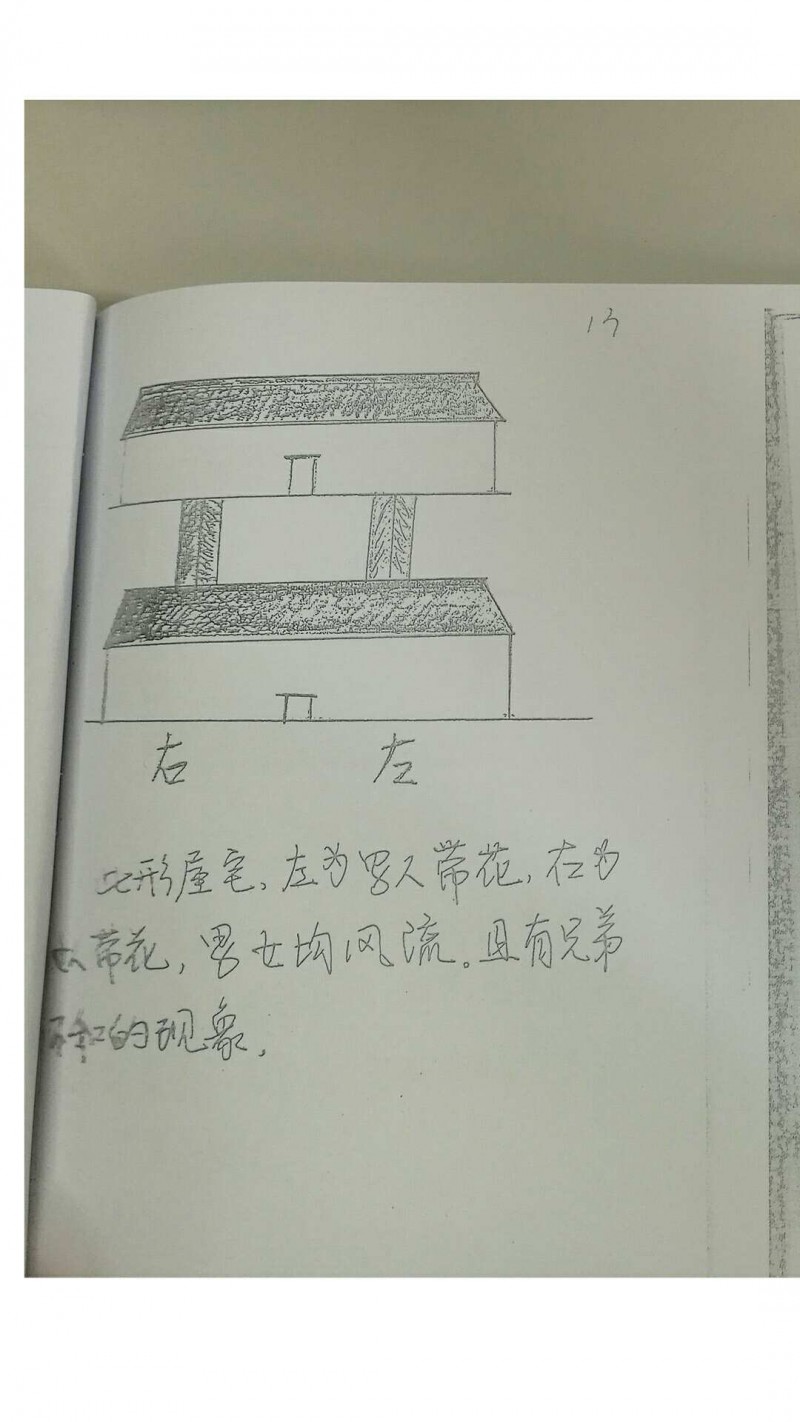 13
右 左
此形屋宅、左为男人带花,右为
女带花,男女均风流。且有兄弟
不和的现象,